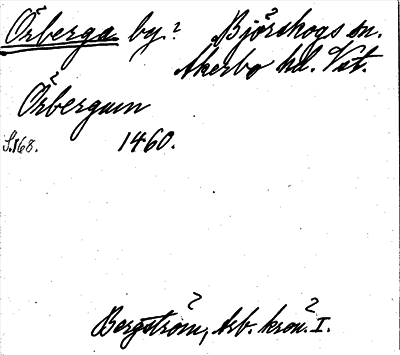 Örberga by? Björskogs sn.
Åkerbo hd. Vst.
Örbergum
S. 168. 1460.
Bergström, Arb. krön. I.